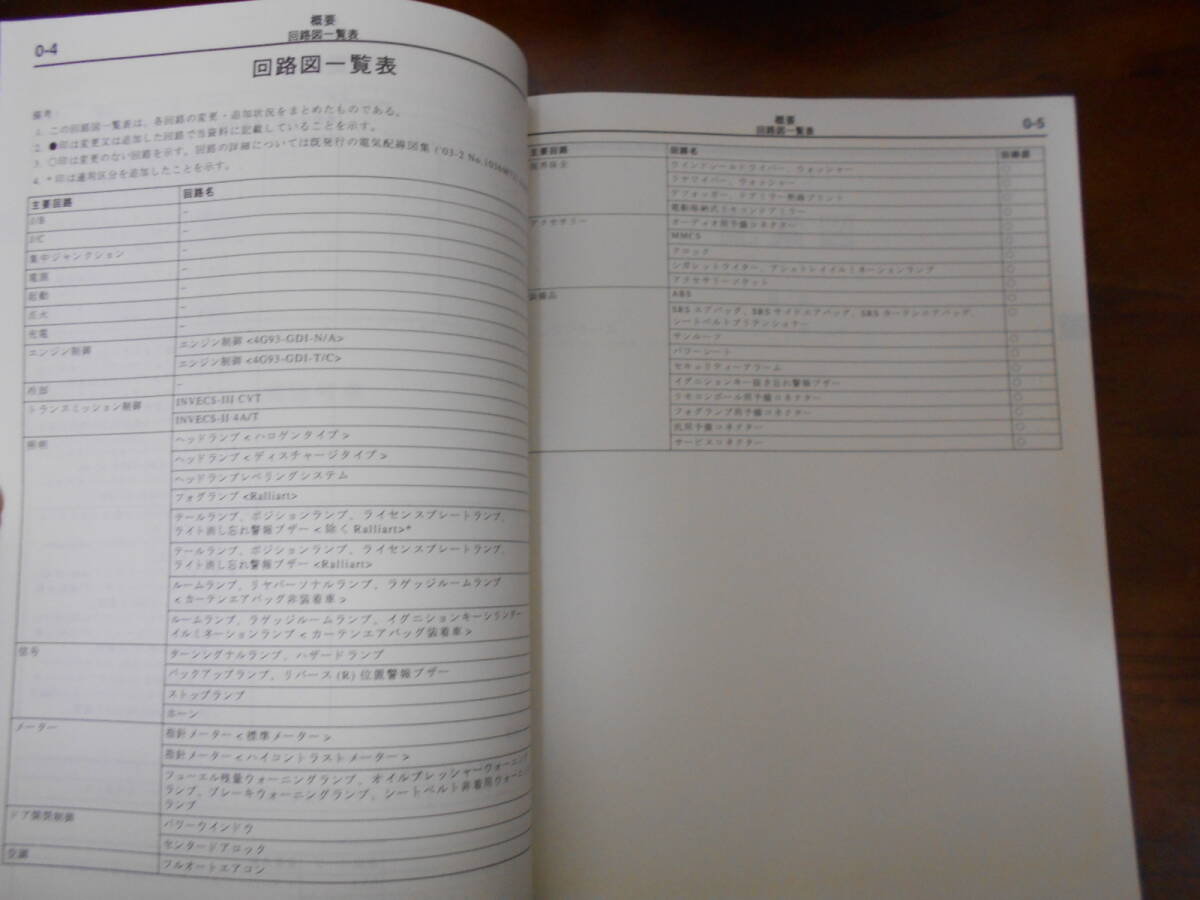 0-4
概要
回路図一覧表
回路図一覧表
備考
1. この回路図一覧表は、各回路の変更・追加状況をまとめたものである。
2. ●印は変更又は追加した回路で当資料に記載していることを示す。
3. ○印は変更のない回路を示す。回路の詳細については既発行の電気配線図集 ('03-2 No.1036
4. *印は適用区分を追加したことを示す。
主要回路 回路名
J/B -
J/C -
集中ジャンクション -
電源 -
起動 -
点火 -
充電 -
エンジン制御 エンジン制御 <4G93-GDI-N/A>
エンジン制御 <4G93-GDI-T/C>
冷却 -
トランスミッション制御 INVECS-III CVT
INVECS-II 4A/T
照明 ヘッドランプ <ハロゲンタイプ>
ヘッドランプ <ディスチャージタイプ>
ヘッドランプレベリングシステム
フォグランプ <Ralliart>
テールランプ、ポジションランプ、ライセンスプレートランプ、
ライト消し忘れ警報ブザー <除く Ralliart>*
テールランプ、ポジションランプ、ライセンスプレートランプ、
ライト消し忘れ警報ブザー <Ralliart>
ルームランプ、リヤパーソナルランプ、ラゲッジルームランプ
<カーテンエアバッグ非装着車>
ルームランプ、ラゲッジルームランプ、イグニションキーシリンダー
イルミネーションランプ <カーテンエアバッグ装着車>
信号 ターンシグナルランプ、ハザードランプ
バックアップランプ、リバース (R) 位置警報ブザー
ストップランプ
ホーン
メーター 指針メーター <標準メーター>
指針メーター <ハイコントラストメーター>
フューエル残量ウォーニングランプ、オイルプレッシャーウォーニング
ランプ、ブレーキウォーニングランプ、シートベルト非着用ウォーニング
ランプ
ドア開閉制御 パワーウインドウ
センタードアロック
空調 フルオートエアコン
概要
回路図一覧表
0-5
主要回路 回路名 回路図
視界保全 ウインドシールドワイパー、ウォッシャー ○
リヤワイパー、ウォッシャー ○
デフォッガー、ドアミラー熱線プリント ○
電動格納式リモコンドアミラー ○
アクセサリー オーディオ用予備コネクター ○
MMCS ○
クロック ○
シガレットライター、アシュトレイイルミネーションランプ ○
アクセサリーソケット ○
装備品 ABS ○
SRS エアバッグ、SRS サイドエアバッグ、SRS カーテンエアバッグ、 ○
シートベルトプリテンショナー
サンルーフ ○
パワーシート ○
セキュリティーアラーム ○
イグニションキー抜き忘れ警報ブザー ○
リモコンポール用予備コネクター ○
フォグランプ用予備コネクター ○
汎用予備コネクター ○
サービスコネクター ○